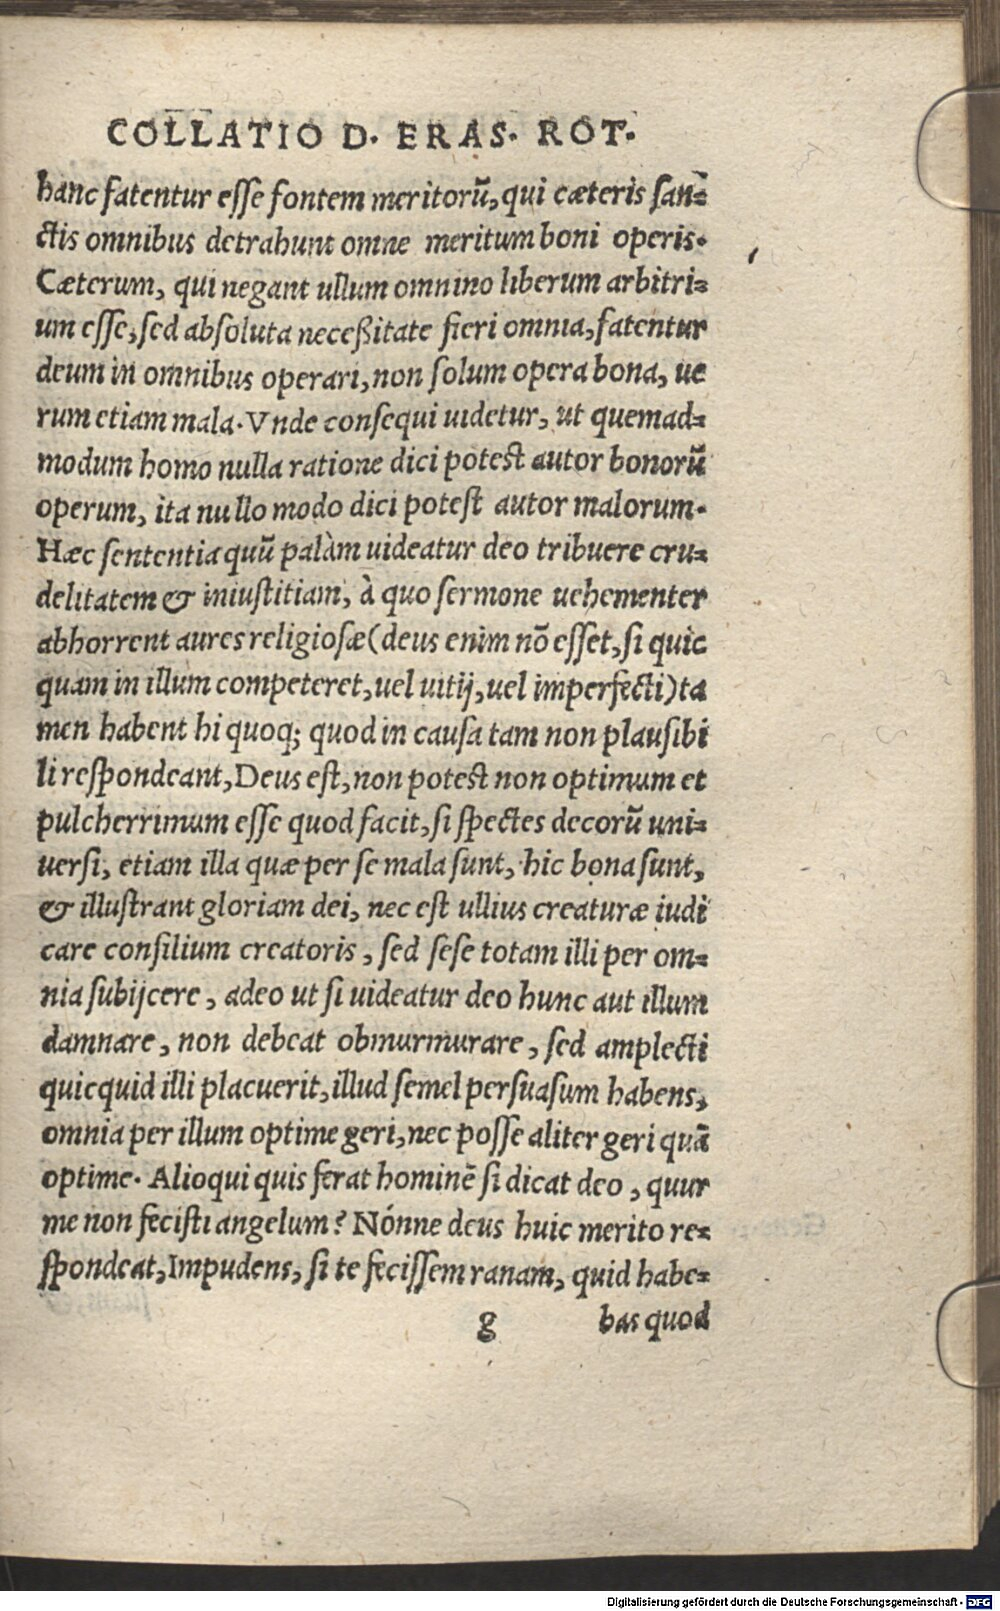 COLLATIO D. ERAS. ROT.
hanc fatentur esse fontem meritorũ, qui cæteris san⸗
ctis omnibus detrahunt omne meritum boni operis.
Cæterum, qui negant ullum omnino liberum arbitri⸗
um esse, sed absoluta neceßitate fieri omnia, fatentur
deum in omnibus operari, non solum opera bona, ue
rum etiam mala. Vnde consequi uidetur, ut quemad⸗
modum homo nulla ratione dici potest autor bonorũ
operum, ita nullo modo dici potest autor malorum.
Hæc sententia quũ palàm uideatur deo tribuere cru⸗
delitatem & iniustitiam, à quo sermone uehementer
abhorrent aures religiosæ (deus enim nõ esset, si quic
quam in illum competeret, uel uitij, uel imperfecti) ta
men habent hi quoq; quod in causa tam non plausibi
li respondeant, Deus est, non potest non optimum et
pulcherrimum esse quod facit, si spectes decorũ uni⸗
uersi, etiam illa quæ per se mala sunt, hic bona sunt,
& illustrant gloriam dei, nec est ullius creaturæ iudi
care consilium creatoris, sed sese totam illi per om⸗
nia subijcere, adeo ut si uideatur deo hunc aut illum
damnare, non debeat obmurmurare, sed amplecti
quicquid illi placuerit, illud semel persuasum habens,
omnia per illum optime geri, nec posse aliter geri quã
optime. Alioqui quis ferat hominẽ si dicat deo, quur
me non fecisti angelum? Nónne deus huic merito re⸗
spondeat, Impudens, si te fecissem ranam, quid habe⸗
g bas quod
Digitalisierung gefördert durch die Deutsche Forschungsgemeinschaft - DFG